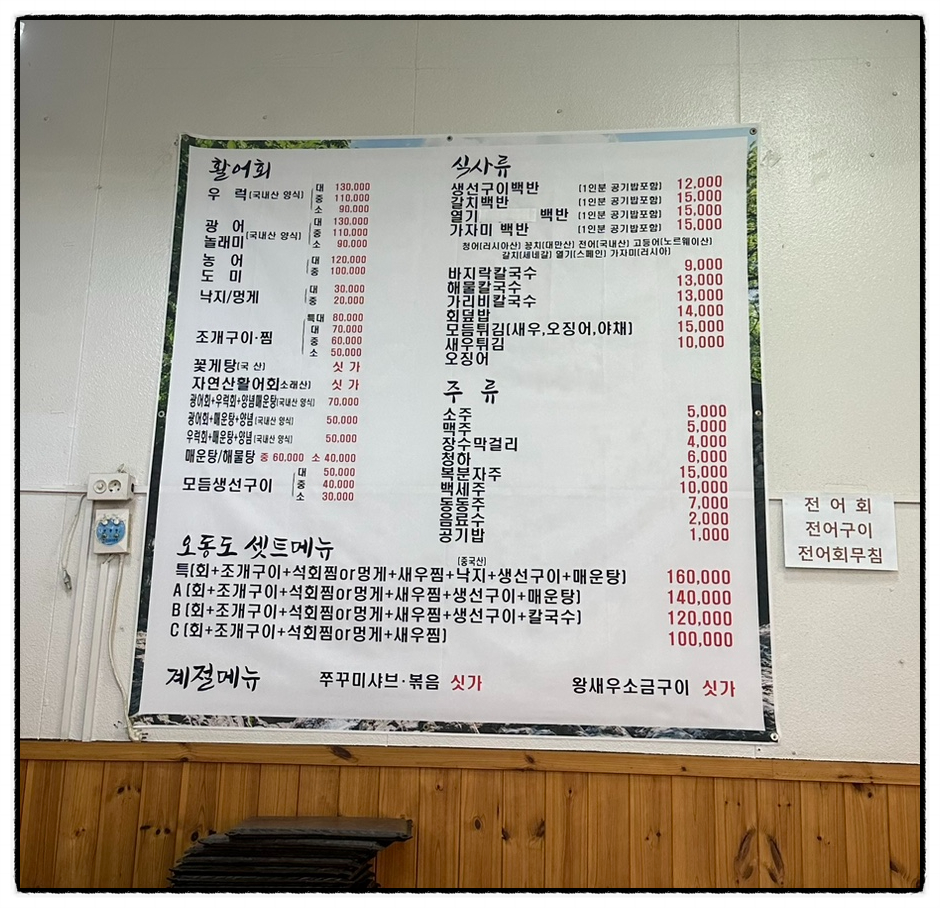 활어회
우 럭(국내산 양식) 대 130,000
중 110,000
소 90,000
광 어
놀래미(국내산 양식) 대 130,000
중 110,000
소 90,000
농 어
도 미
대 120,000
중 100,000
낙지/멍게 대 30,000
중 20,000
조개구이·찜 특대 80,000
대 70,000
중 60,000
소 50,000
꽃게탕(국 산) 싯 가
자연산활어회(소래산) 싯 가
광어회+우럭회+양념매운탕(국내산 양식) 70,000
광어회+매운탕+양념(국내산 양식) 50,000
우럭회+매운탕+양념(국내산 양식) 50,000
매운탕/해물탕 중 60,000 소 40,000
모듬생선구이 대 50,000
중 40,000
소 30,000
식사류
생선구이백반 (1인분 공기밥포함) 12,000
갈치백반 (1인분 공기밥포함) 15,000
열기 백반 (1인분 공기밥포함) 15,000
가자미 백반 (1인분 공기밥포함) 15,000
청어(러시아산) 꽁치(대만산) 전어(국내산) 고등어(노르웨이산)
갈치(세네갈) 열기(스페인) 가자미(러시아)
바지락칼국수 9,000
해물칼국수 13,000
가리비칼국수 13,000
회덮밥 14,000
모듬튀김(새우,오징어,야채) 15,000
새우튀김 10,000
오징어
주 류
소주 5,000
맥주 5,000
장수막걸리 4,000
청하 6,000
복분자주 15,000
백세주 10,000
동동주 7,000
음료수 2,000
공기밥 1,000
오동도 셋트메뉴
(중국산)
특(회+조개구이+석회찜or멍게+새우찜+낙지+생선구이+매운탕) 160,000
A(회+조개구이+석회찜or멍게+새우찜+생선구이+매운탕) 140,000
B(회+조개구이+석회찜or멍게+새우찜+생선구이+칼국수) 120,000
C(회+조개구이+석회찜or멍게+새우찜) 100,000
계절메뉴 쭈꾸미샤브·볶음 싯가 왕새우소금구이 싯가
전 어 회
전어구이
전어회무침